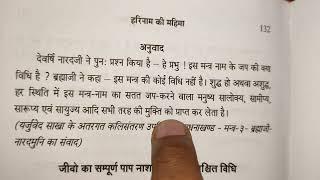 हरिनाम की महिमा
132
अनुवाद
देवर्षि नारदजी ने पुनः प्रश्न किया है – हे प्रभु ! इस मन्त्र नाम के जप की क्या
विधि है ? ब्रह्माजी ने कहा – इस मन्त्र की कोई विधि नहीं है। शुद्ध हो अथवा अशुद्ध,
हर स्थिति में इस मन्त्र-नाम का सतत जप-करने वाला मनुष्य सालोक्य, सामीप्य,
सारूप्य एवं सायुज्य आदि सभी तरह की मुक्ति को प्राप्त कर लेता है।
(यर्जुवेद साखा के अतरगत कलिसंतरण उप नाखण्ड - मन्त्र-३- ब्रह्माजी-
नारदमुनि का संवाद)
जीवो का सम्पूर्ण पाप नाश क्षित विधि